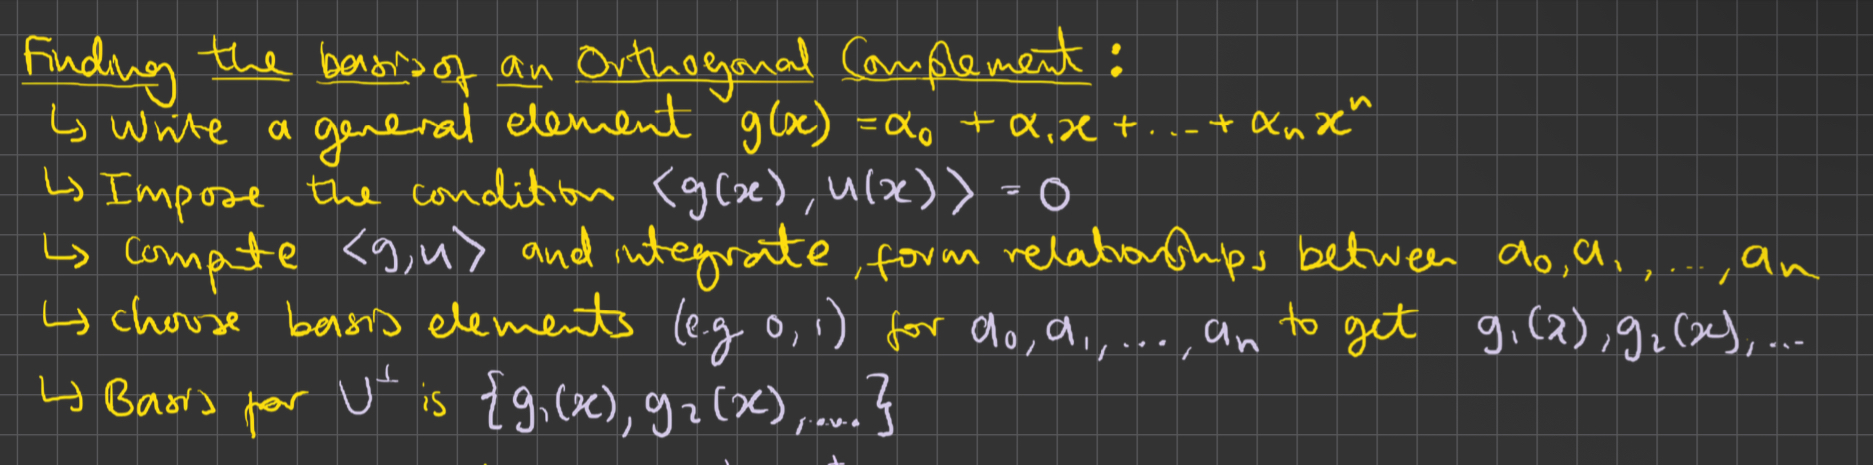 Finding the basis of an Orthogonal Complement :
↳ Write a general element g(x) = α₀ + α₁x + ... + αₙxⁿ
↳ Impose the condition ⟨g(x), u(x)⟩ = 0
↳ compute ⟨g,u⟩ and integrate, form relationships between a₀, a₁, ..., aₙ
↳ choose basis elements (e.g 0, 1) for a₀, a₁, ..., aₙ to get g₁(x), g₂(x), ...
↳ Basis for U^⊥ is {g₁(x), g₂(x), .....}